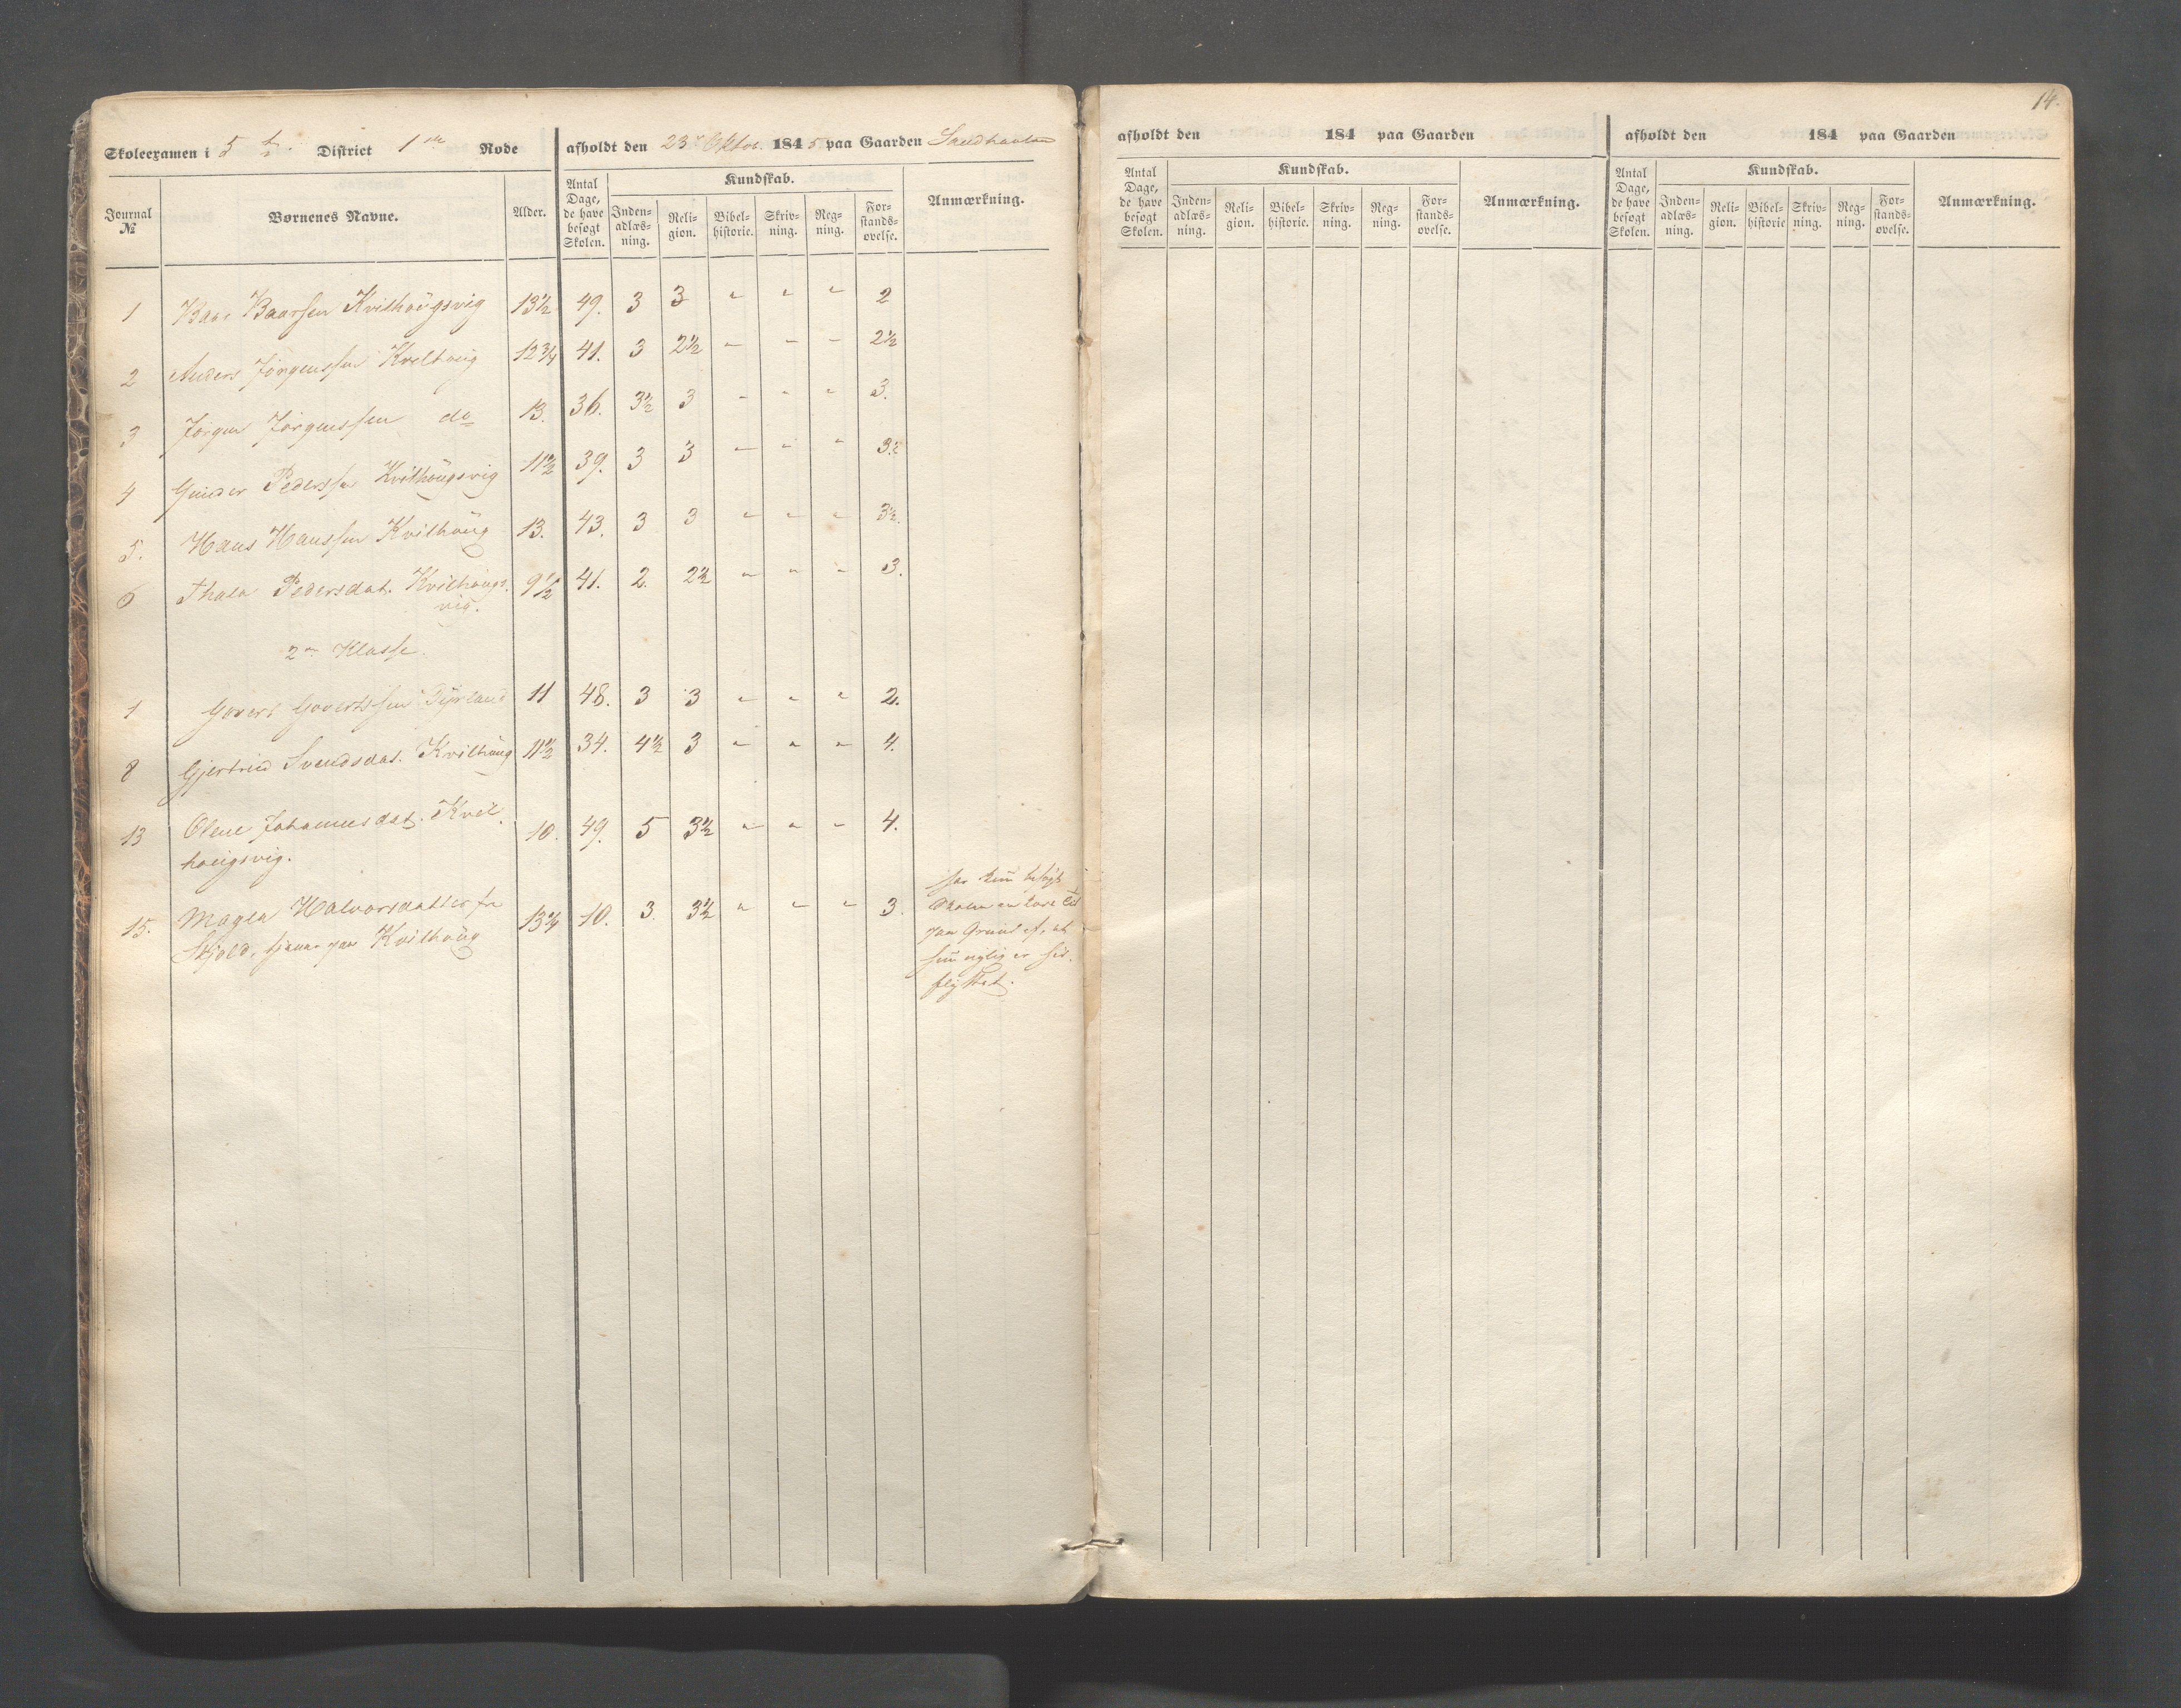 Skoleexamen i 5te District 1ste Rode
afholdt den 23de Oktob. 1845 paa Gaarden Sandhaaland
Journal № Børnenes Navne. Alder. Antal Dage, de have besøgt Skolen. Kundskab. Inden-adlæs-ning. Reli-gion. Bibel-historie. Skriv-ning. Reg-ning. For-stands-øvelse. Anmærkning.
1 Baar Baarsen Kvilhaügsvig 13½ 49. 3 3 " " " 2
2 Anders Jörgenssen Kvilhaüg 12¾ 41. 3 2½ " " " 2½
3 Jörgen Jörgenssen do 13. 36. 3½ 3 " " " 3.
4 Gunder Pederssen Kvilhaügsvig 11½ 39. 3 3 " " " 3½
5. Hans Hanssen Kvilhaüg 13. 43. 3 3 " " " 3½.
6 Thala Pedersdat. Kvilhaügs- 9½ 41. 2. 2½ " " " 3.
vig.
2den Klasse.
1 Govert Govertssen Dyrland 11 48. 3 3 " " " 2.
8 Gjertrud Svendsdat. Kvilhaüg 11½ 34. 4½ 3 " " " 4.
13 Olene Johannesdat. Kvil- 10. 49. 5 3½ " " " 4.
haügsvig.
15. Magla Halvorsdatter fra 13¼ 10. 3. 3½ " " " 3.
Skjold, tjener paa Kvilhaüg
har kun besögt
Skolen en kort Tid
paa Grund af, at
hun nylig er hid-
flyttet.
14.
afholdt den 184 paa Gaarden
Antal Dage, de have besøgt Skolen. Kundskab. Inden-adlæs-ning. Reli-gion. Bibel-historie. Skriv-ning. Reg-ning. For-stands-øvelse. Anmærkning.
afholdt den 184 paa Gaarden
Antal Dage, de have besøgt Skolen. Kundskab. Inden-adlæs-ning. Reli-gion. Bibel-historie Skriv-ning. Reg-ning. For-stands-øvelse. Anmærkning.